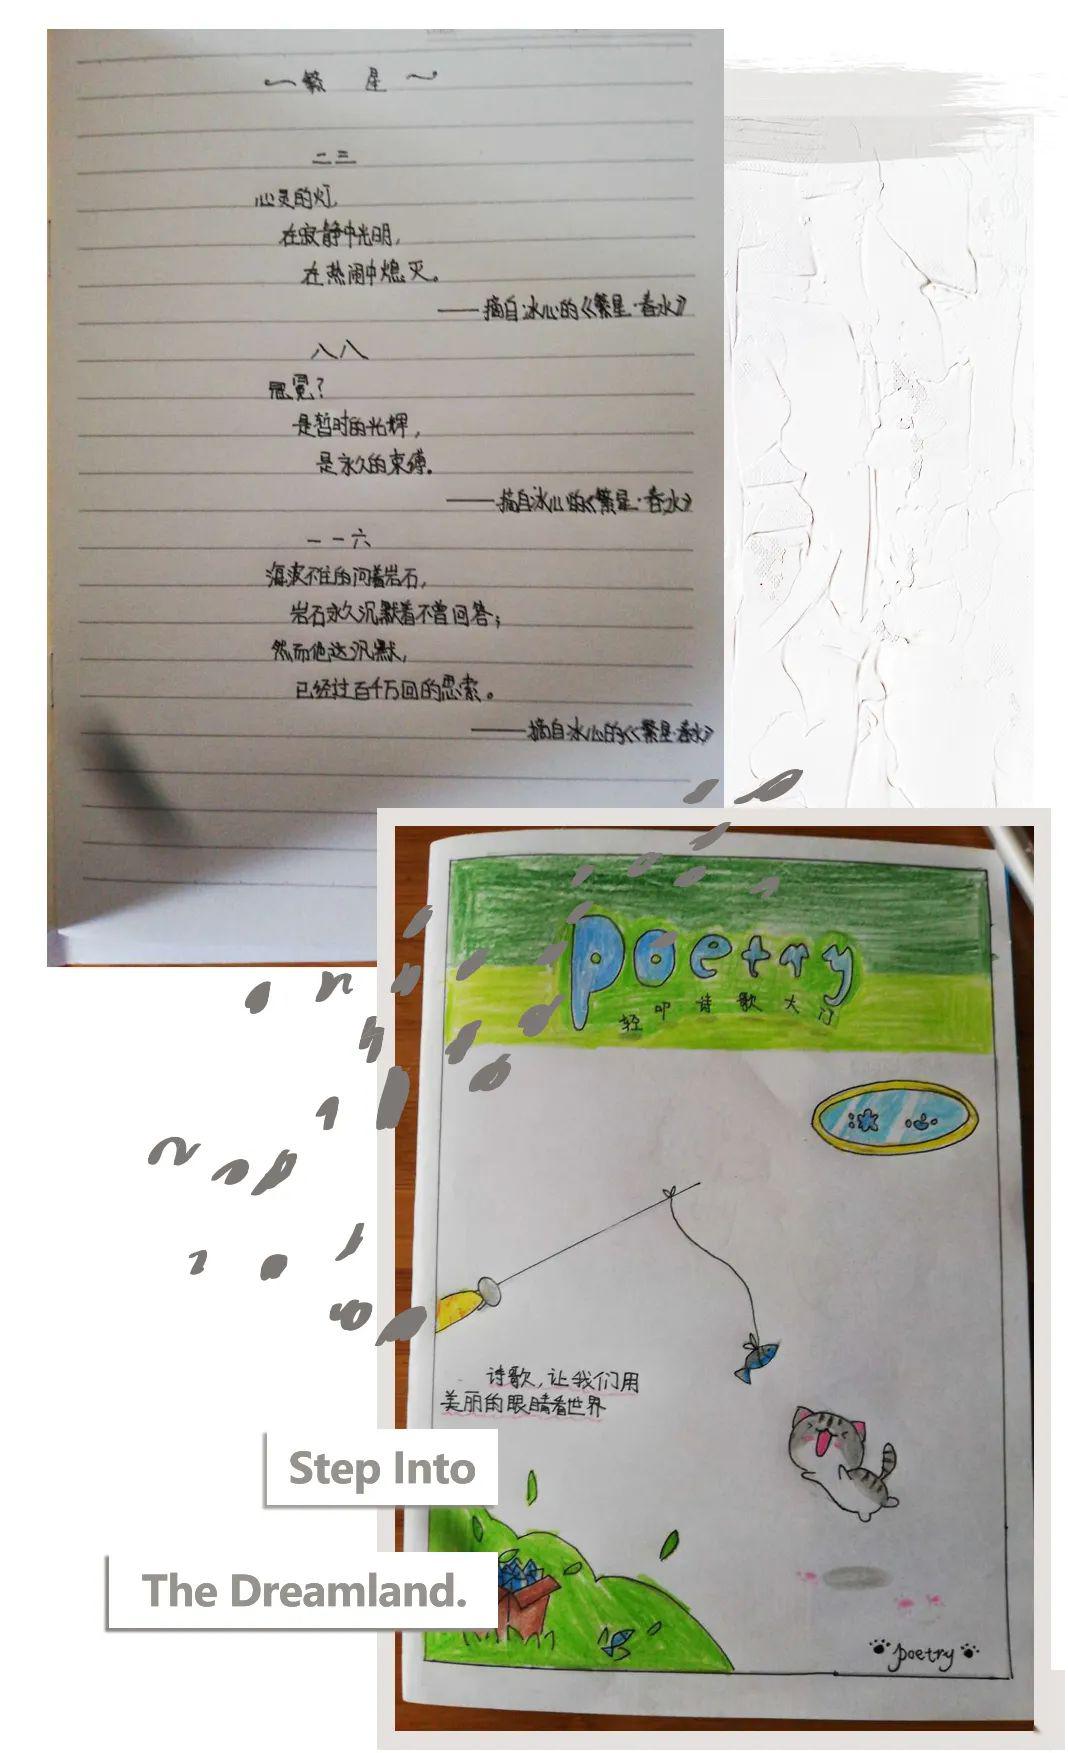 繁 星
二三
心灵的灯,
在寂静中光明,
在热闹中熄灭。
——摘自冰心的《繁星·春水》
八八
冠冕?
是暂时的光辉,
是永久的束缚。
——摘自冰心的《繁星·春水》
一一六
海波不住的问着岩石,
岩石永久沉默着不曾回答;
然而他这沉默,
已经过百千万回的思索。
——摘自冰心的《繁星·春水》
poetry
轻叩诗歌大门
冰心
诗歌,让我们用
美丽的眼睛看世界
Step Into
The Dreamland.
poetry